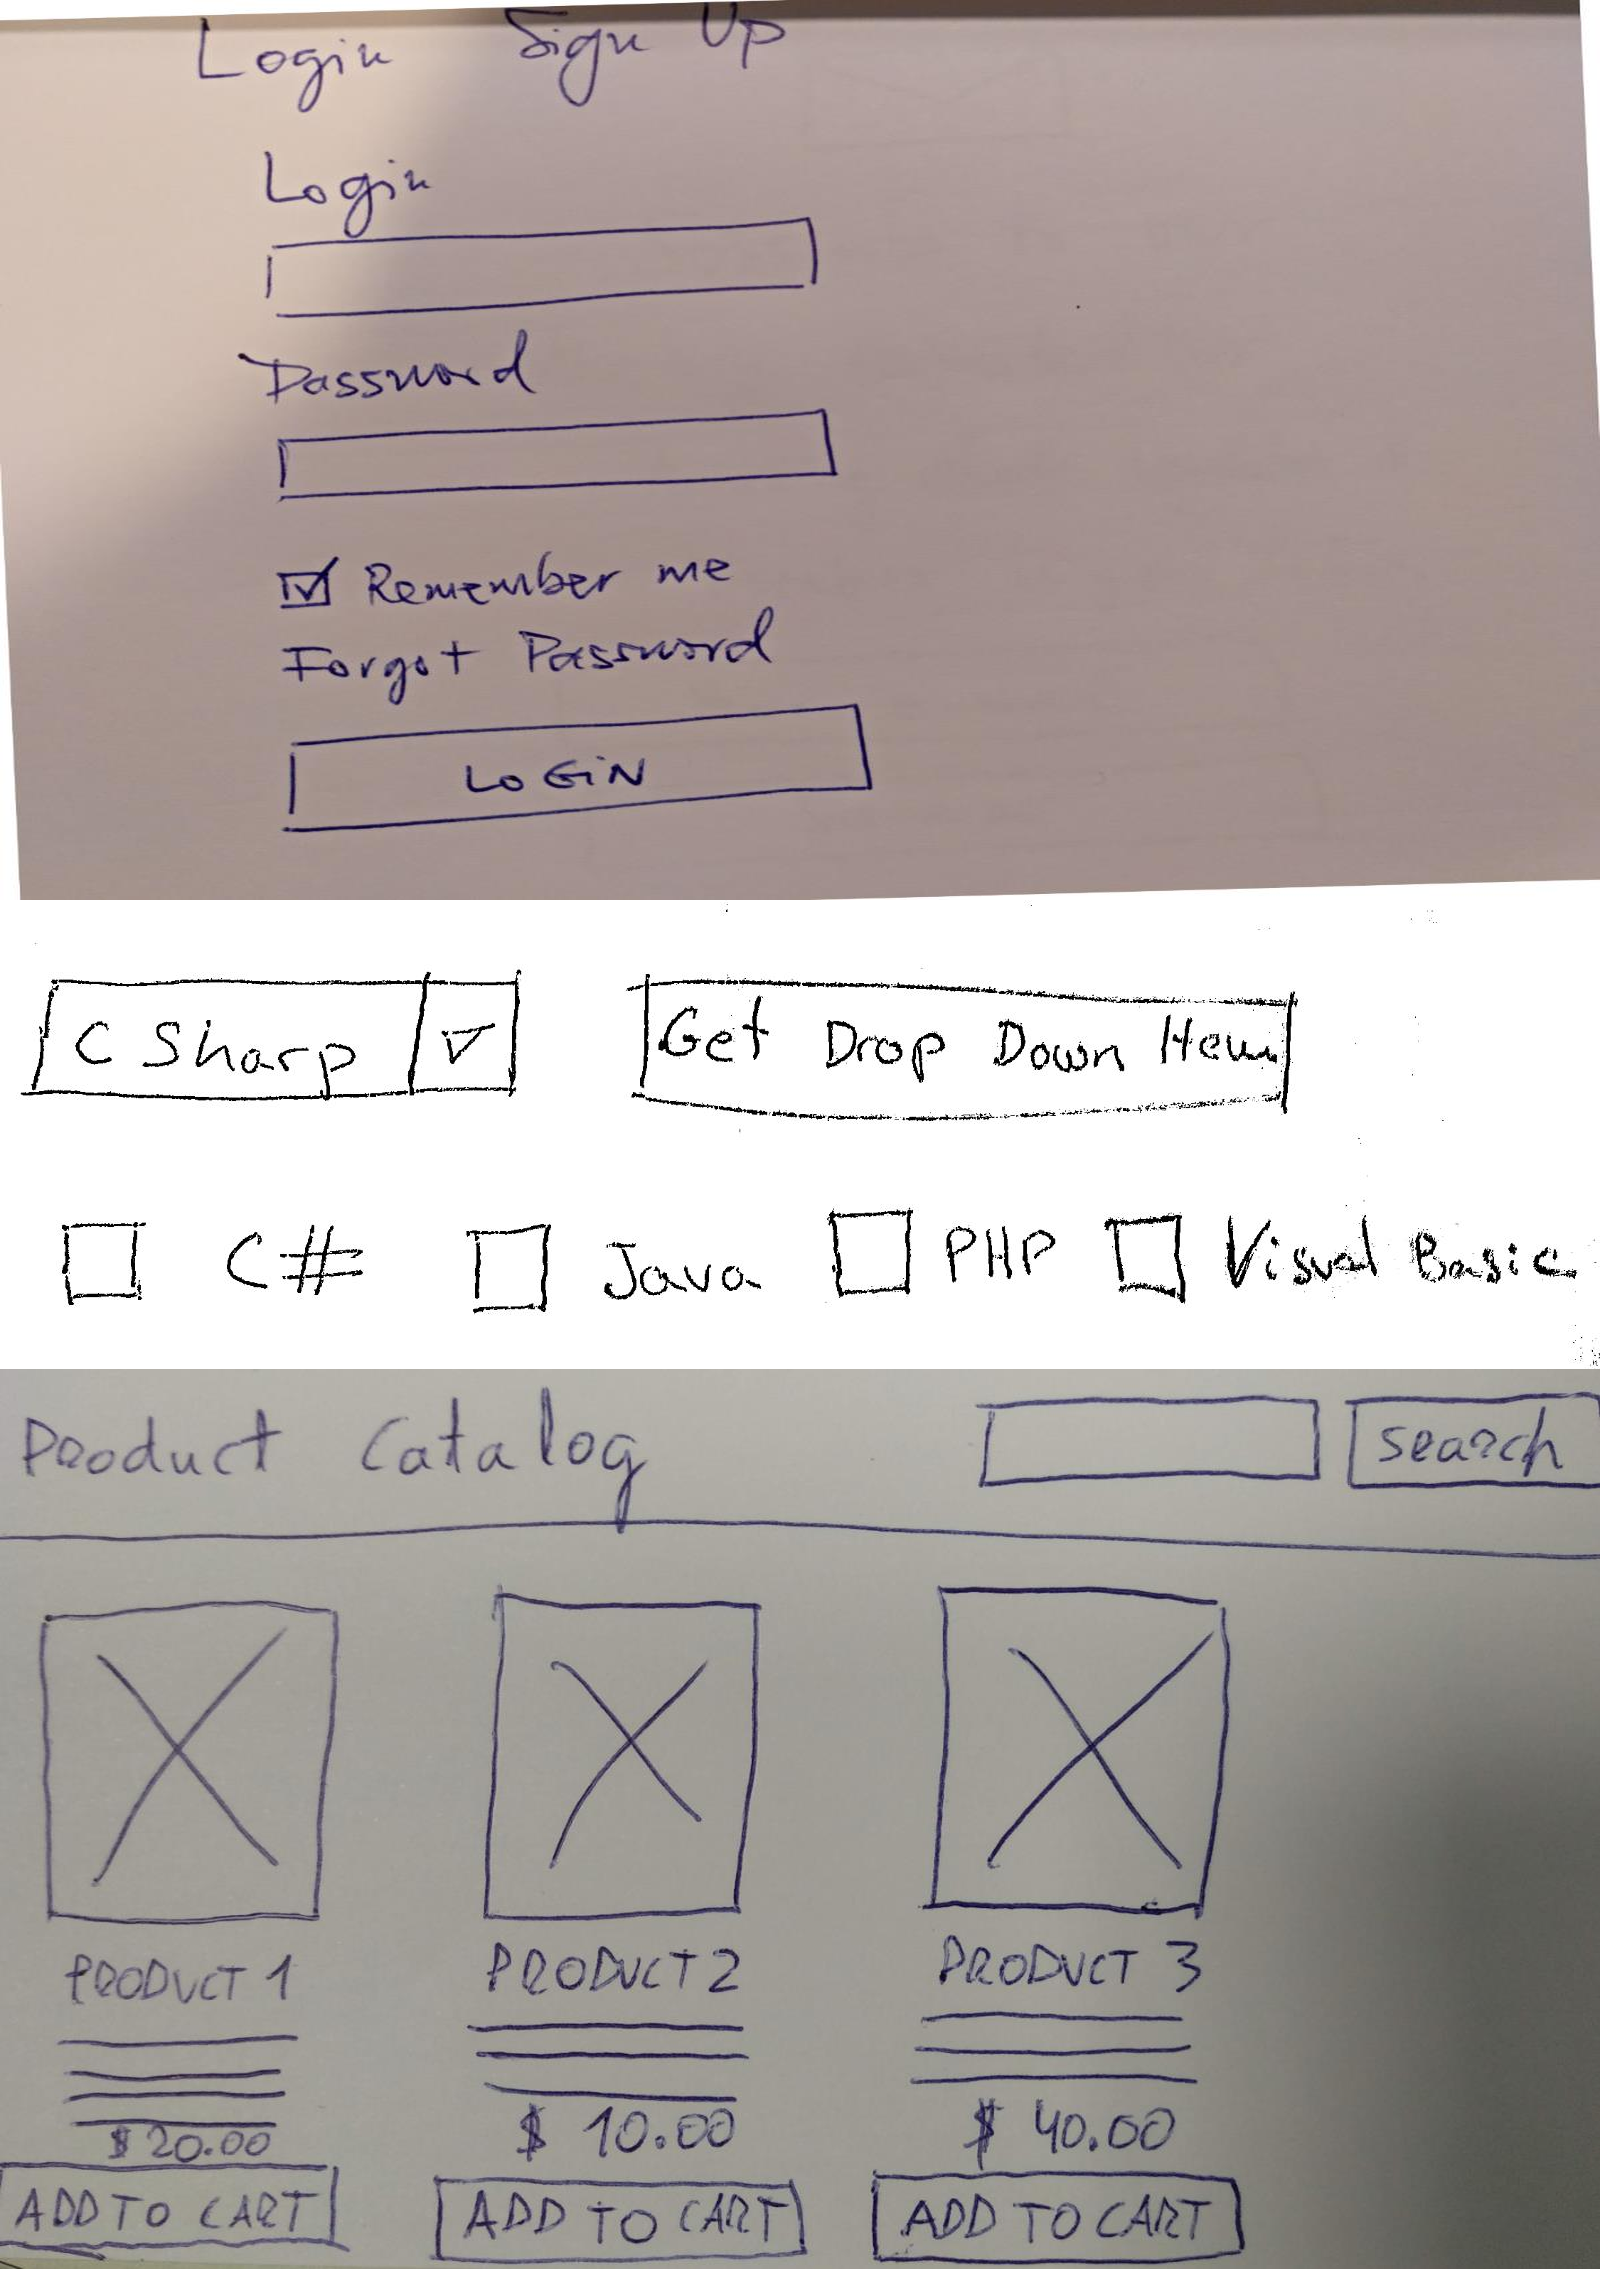 Login Sign Up
Login
Password
Remember me
Forgot Password
LOGIN
C Sharp Get Drop Down Item
C# Java PHP Visual Basic
Product Catalog search
PRODUCT 1 PRODUCT 2 PRODUCT 3
$20.00 $ 10.00 $ 40.00
ADD TO CART ADD TO CART ADD TO CART